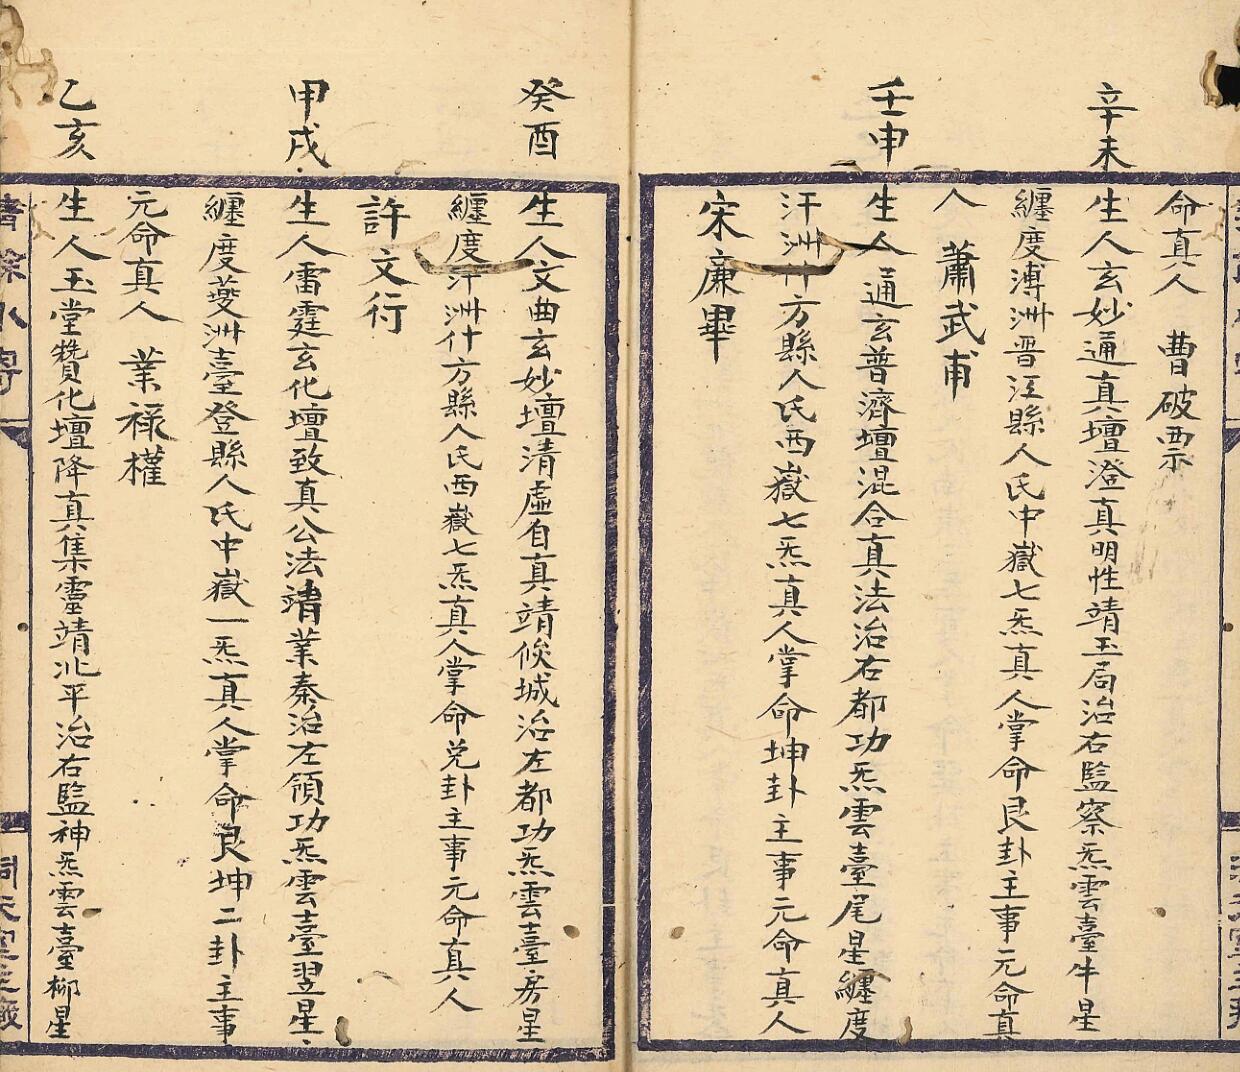 命真人　曹破票
辛未
生人玄妙通真壇澄真明性靖玉局治右監察炁雲臺牛星
纏度溥洲晋江縣人氏中嶽七炁真人掌命艮卦主事元命真
人　蕭武甫
壬申
生人通玄普濟壇混合真法治右都功炁雲臺尾星纏度
汗洲什方縣人氏西嶽七炁真人掌命坤卦主事元命真人
宋廉畢
癸酉
生人文曲玄妙壇清虛自真靖候城治左都功炁雲臺房星
纏度汗洲什方縣人氏西嶽七炁真人掌命兌卦主事元命真人
許文衍
甲戌
生人雷霆玄化壇致真公法靖業秦治左領功炁雲臺翌星
纏度菱洲臺登縣人氏中嶽一炁真人掌命艮坤二卦主事
元命真人　業祿權
乙亥
生人玉堂贊化壇降真集靈靖北平治右監神炁雲臺柳星